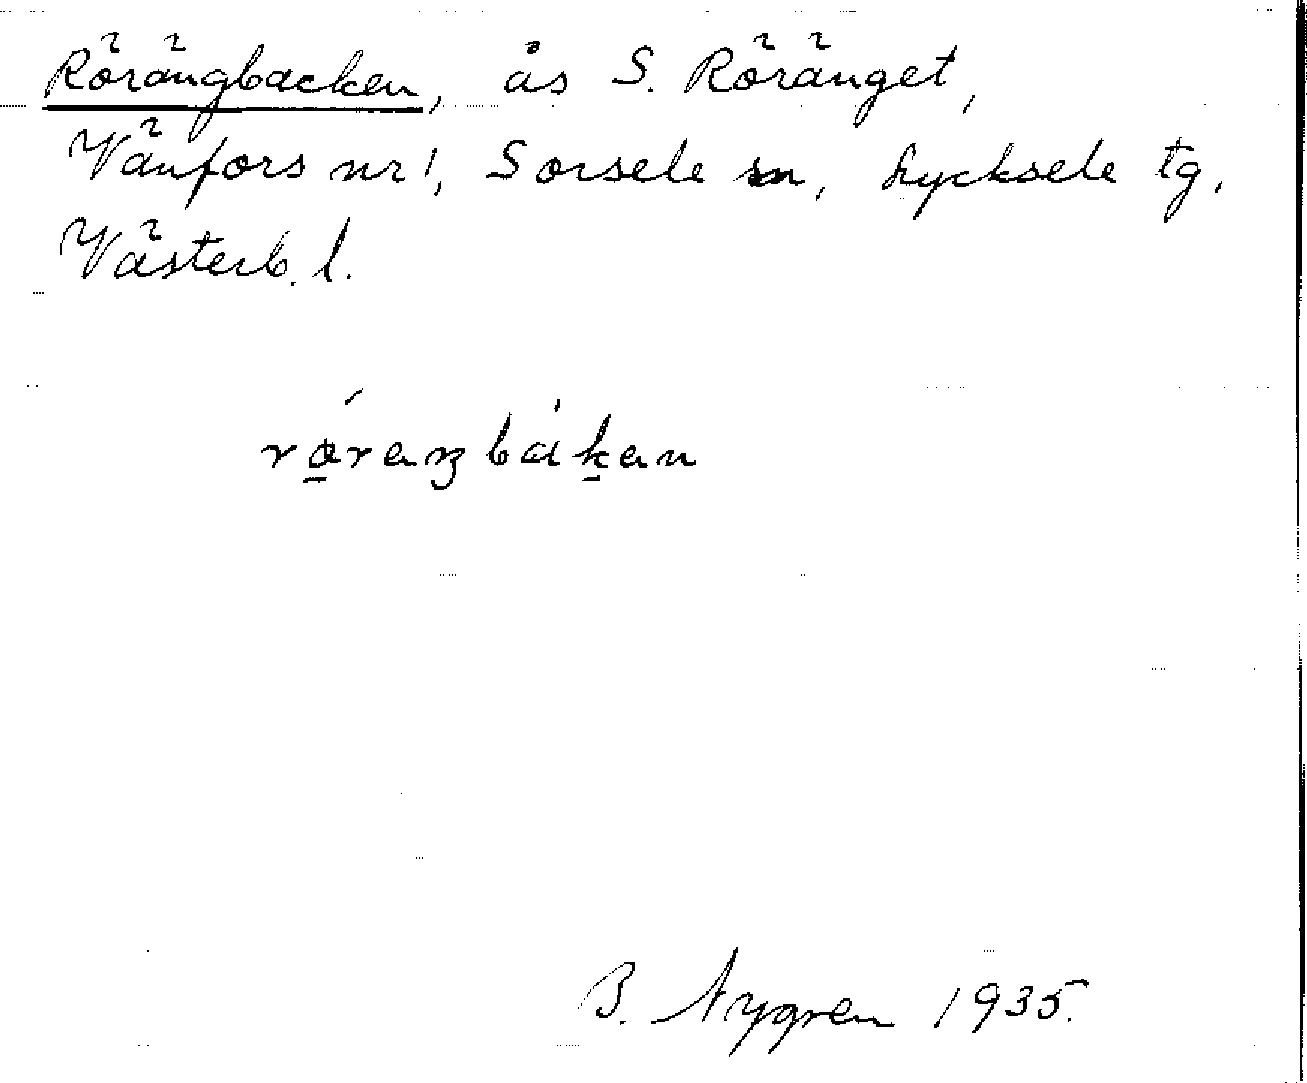 Rörängbacken, ås S. Röränget,
Vänfors nr 1, Sorsele sn, Lycksele tg,
Västerb. l.
B. Nygren 1935.